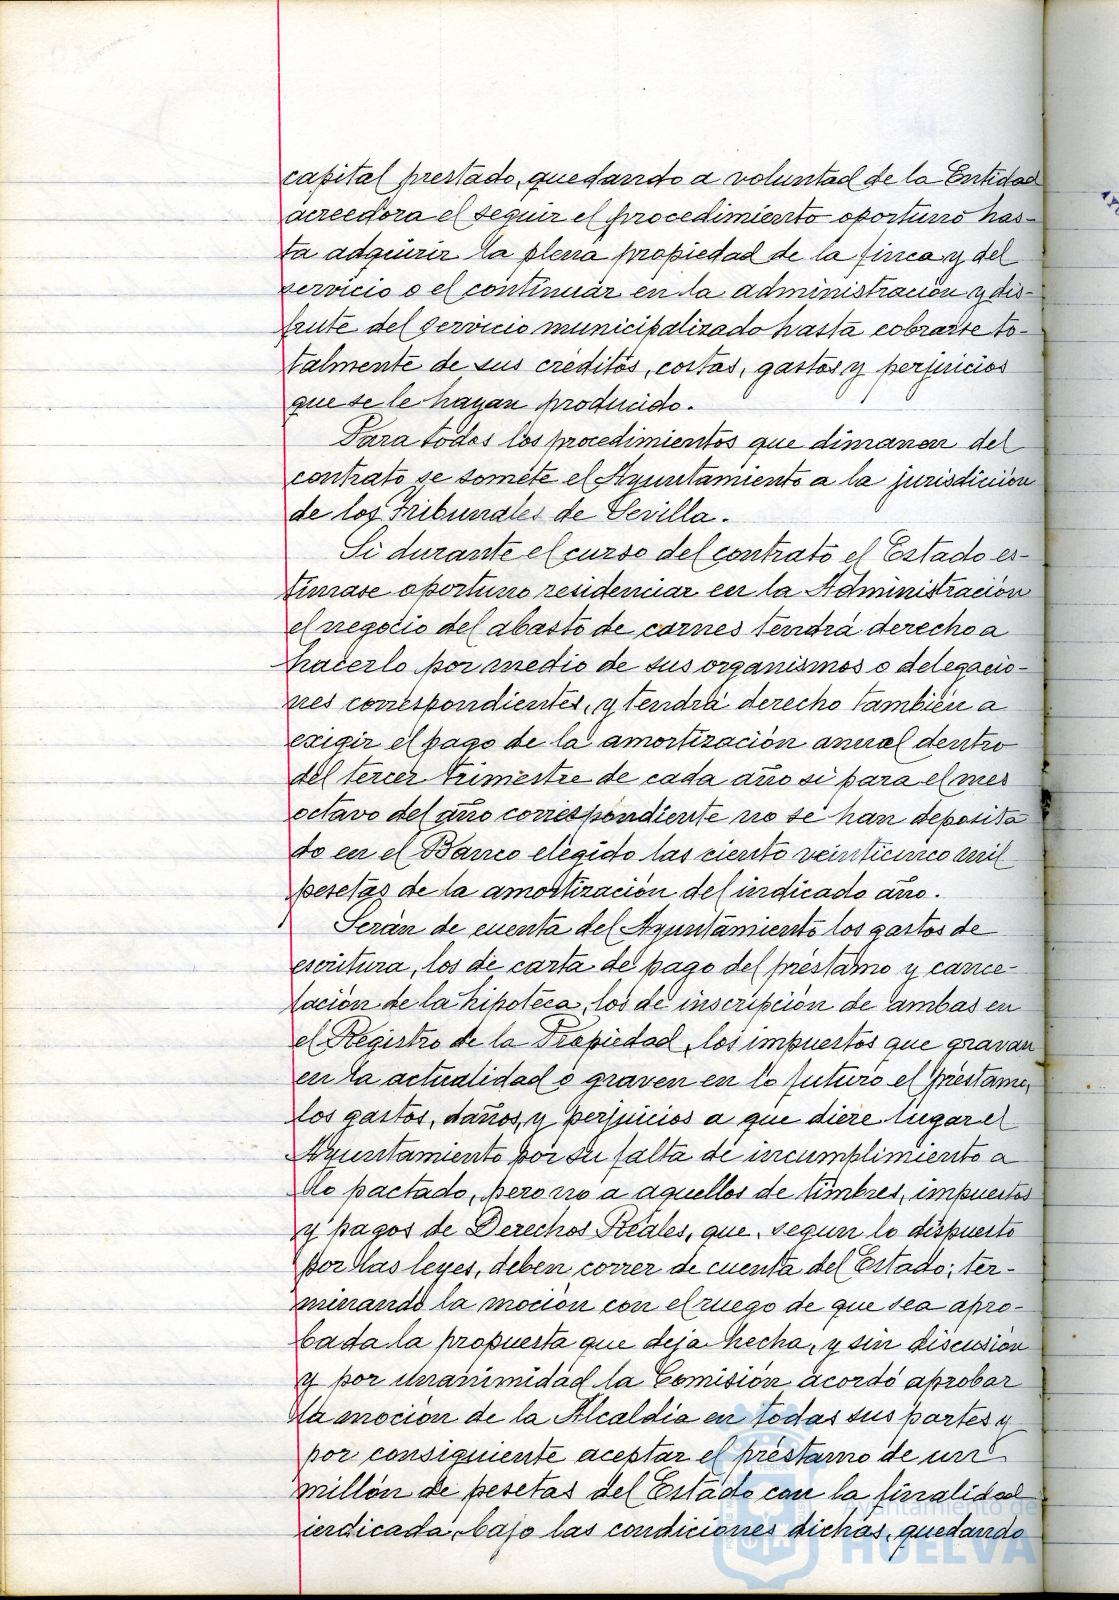 capital prestado, quedando a voluntad de la Entidad
acreedora el seguir el procedimiento oportuno has-
ta adquirir la plena propiedad de la finca y del
servicio o el continuar en la administración y dis-
frute del servicio municipalizado hasta cobrarse to-
talmente de sus créditos, costas, gastos y perjuicios
que se le hayan producido.
Para todos los procedimientos que dimanan del
contrato se somete el Ayuntamiento a la jurisdición
de los Tribunales de Sevilla.
Si durante el curso del contrato el Estado es-
timase oportuno residenciar en la Administración
el negocio del abasto de carnes tendrá derecho a
hacerlo por medio de sus organismos o delegacio-
nes correspondientes, y tendrá derecho también a
exigir el pago de la amortización anual dentro
del tercer trimestre de cada año si para el mes
octavo del año correspondiente no se han deposita
do en el Banco elegido las ciento veinticinco mil
pesetas de la amortización del indicado año.
Serán de cuenta del Ayuntamiento los gastos de
escritura, los de carta de pago del préstamo y cance-
lación de la hipoteca, los de inscripción de ambas en
el Registro de la Propiedad, los impuestos que gravan
en la actualidad o graven en lo futuro el préstamo,
los gastos, daños, y perjuicios a que diere lugar el
Ayuntamiento por su falta de incumplimiento a
lo pactado, pero no a aquellos de timbres, impuestos
y pagos de Derechos Reales, que, segun lo dispuesto
por las leyes, deben correr de cuenta del Estado; ter-
minando la moción con el ruego de que sea apro-
bada la propuesta que deja hecha, y sin discusión
y por unanimidad la Comisión acordó aprobar
la moción de la Alcaldía en todas sus partes y
por consiguiente aceptar el préstamo de un
millón de pesetas del Estado con la finalidad
indicada, bajo las condiciones dichas, quedando
Ayuntamiento de
HUELVA